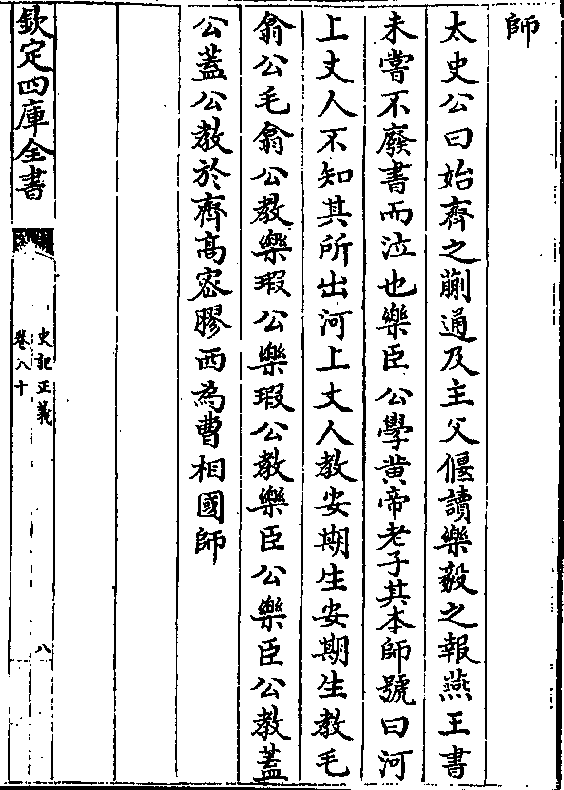 師
太史公曰始齊之蒯通及主父偃讀樂毅之報燕王書
未嘗不廢書而泣也樂臣公學黄帝老子其本師號曰河
上丈人不知其所出河上丈人教安期生安期生教毛
翕公毛翕公教樂瑕公樂瑕公教樂臣公樂臣公教蓋
公蓋公教於齊髙宻膠西為曹相國師
欽定四庫全書
史記正義
卷八十
八